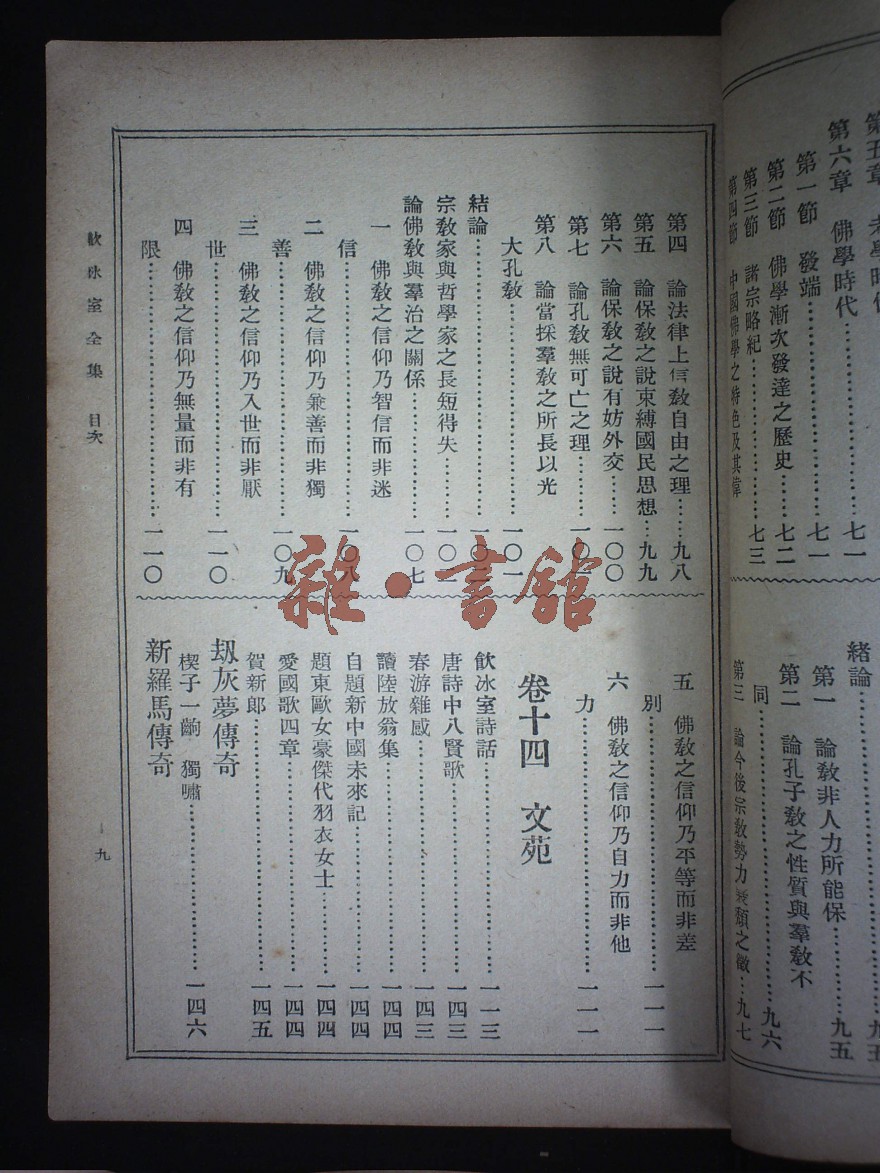 第五章
第六章 佛學時代……七一
第一節 發端……七一
第二節 佛學漸次發達之歷史……七二
第三節 諸宗略紀……七三
第四節 中國佛學之特色及其偉
緒論……九五
第一 論教非人力所能保……九五
第二 論孔子教之性質與羣教不
同……九六
第三 論今後宗教勢力衰頹之徵……九七
第四 論法律上信教自由之理……九八
第五 論保教之說束縛國民思想……九九
第六 論保教之說有妨外交……一〇〇
第七 論孔教無可亡之理……一〇
第八 論當採羣教之所長以光
大孔教……一〇一
結論……一〇
宗教家與哲學家之長短得失……一〇
論佛教與羣治之關係……一〇七
一 佛教之信仰乃智信而非迷
信……一〇八
二 佛教之信仰乃兼善而非獨
善……一〇九
三 佛教之信仰乃入世而非厭
世……一一〇
四 佛教之信仰乃無量而非有
限……一一〇
五 佛教之信仰乃平等而非差
別……一一一
六 佛教之信仰乃自力而非他
力……一一一
卷十四 文苑
飲冰室詩話……一一三
唐詩中八賢歌……一四三
春游雜感……一四三
讀陸放翁集……一四四
自題新中國未來記……一四四
題東歐女豪傑代羽衣女士……一四四
愛國歌四章……一四四
賀新郎……一四五
刼灰夢傳奇
楔子一齣 獨嘯……一四六
新羅馬傳奇
飲冰室全集 目次
九
雜·書館